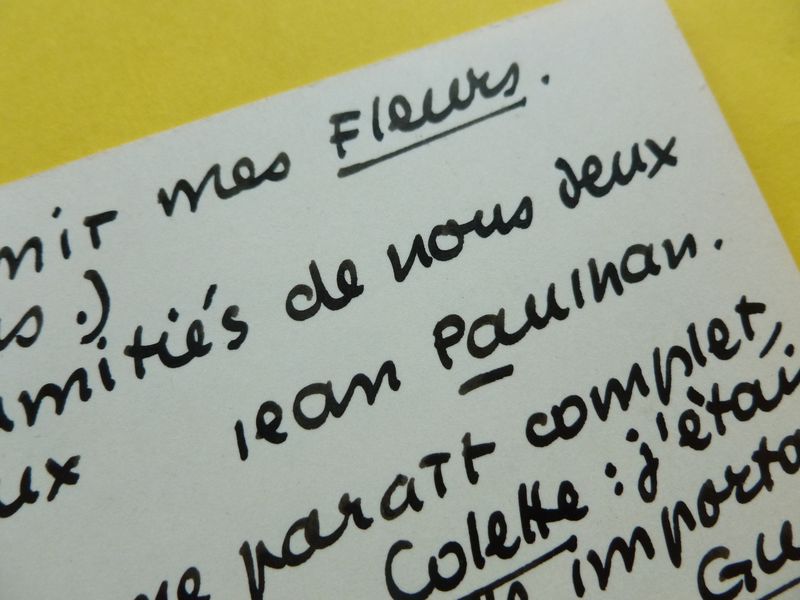 mes Fleurs.
amitiés de nous deux
Jean Paulhan.
paraît complet,
Colette : j'étai
import
Gu